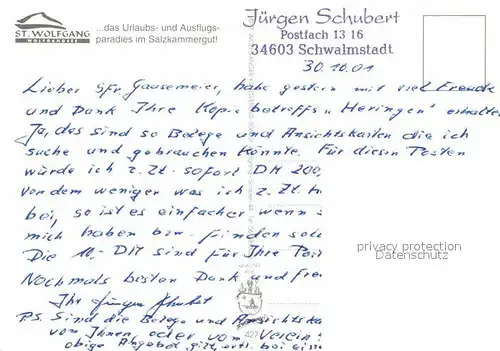 ST. WOLFGANG
WOLFGANGSEE
...das Urlaubs- und Ausflugs-
paradies im Salzkammergut!
Jürgen Schubert
Postfach 13 16
34603 Schwalmstadt
30.10.01
Lieber Sfr. Gausemeier, habe gestern mit viel Freude
und Dank Ihre Kopie betreffs "Meringen" erhalten
Ja, das sind so Belege und Ansichtskarten die ich
suche und gebrauchen könnte. Für diesen Posten
würde ich z. Zt. sofort DM 200,
von dem weniger was ich z. Zt. h
bei, so ist es einfacher, wenn s
mich haben bzw. finden soll
Die 10,- DM sind für Ihre Por
Nochmals besten Dank und fre
Ihr Jürgen Schubert
P.S. Sind die Belege und Ansichtska
von Ihnen, oder vom Verein
obige Angebot gilt bei ein
privacy protection
DATENSCHUTZ